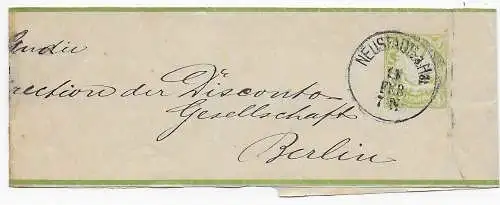 An die
Direction der Disconto-
Gesellschaft
Berlin
NEUSTADT A/H
FEB